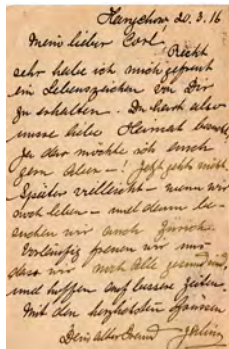 Hangchow 20.3.16
Mein lieber Carl!
Recht
sehr habe ich mich gefreut
ein Lebenszeichen von Dir
zu erhalten. Du hast also
unsre liebe Heimat besucht,
Ja das möchte ich auch
gern aber –! Jetzt gehts nicht
Später vielleicht – wenn wir
noch leben – und dann be-
suchen wir auch Zürich.
Vorläufig freuen wir uns
dass wir noch alle gesund sind
und hoffen auf bessere Zeiten.
Mit den herzlichsten Grüssen
Dein alter Freund